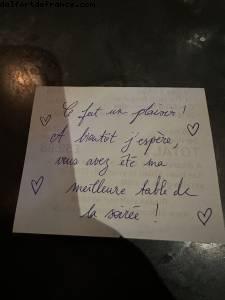 dalfortdefrance.com
Ce fut un plaisir !
A bientôt j'espère,
vous avez été ma
meilleure table de
la soirée !